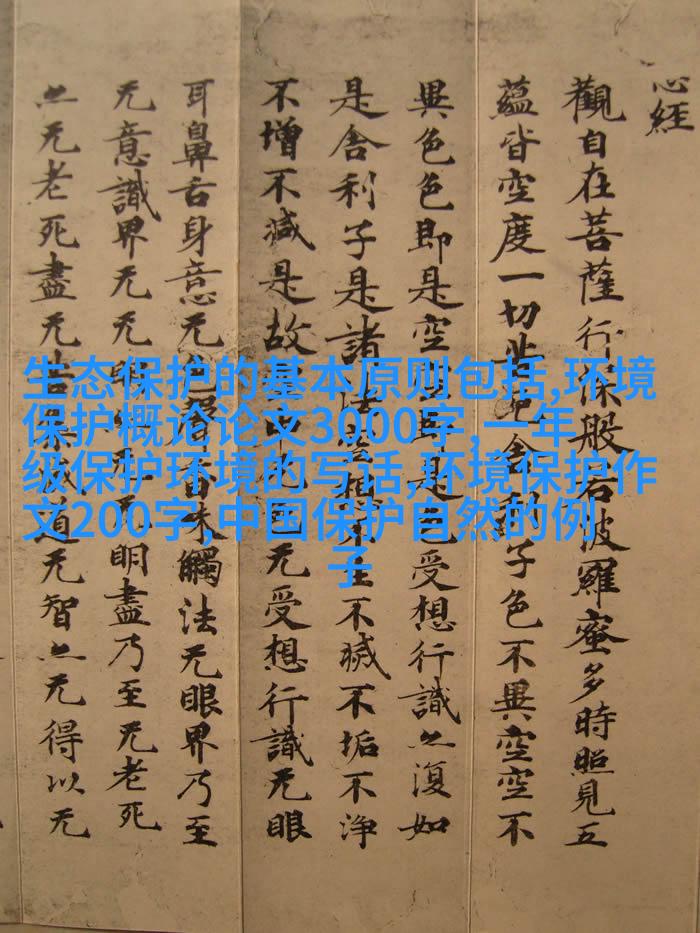 心經
觀自在菩薩行深般若波羅蜜多時照見五
蘊皆空度一切苦厄舍利子色不異空空不
異色色即是空空即是色受想行識亦復如
是舍利子是諸法空相不生不滅不垢不淨
不增不減是故空中无色无受想行識无眼
耳鼻舌身意无色聲香味觸法无眼界乃至
无意識界无无明亦无无明盡乃至无老死
亦无老死盡无苦集滅道无智亦无得以无
生态保护的基本原则包括,环境
保护概论论文3000字,一年
级保护环境的写话,环境保护作
文200字,中国保护自然的例
子